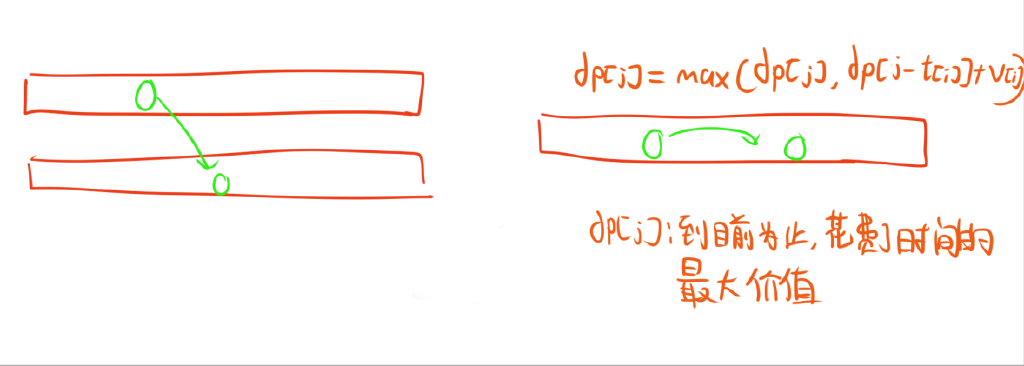 dp[j] = max(dp[j], dp[j-t[i]]+v[i])
dp[j]:到目前为止,花费j时间的
最大价值